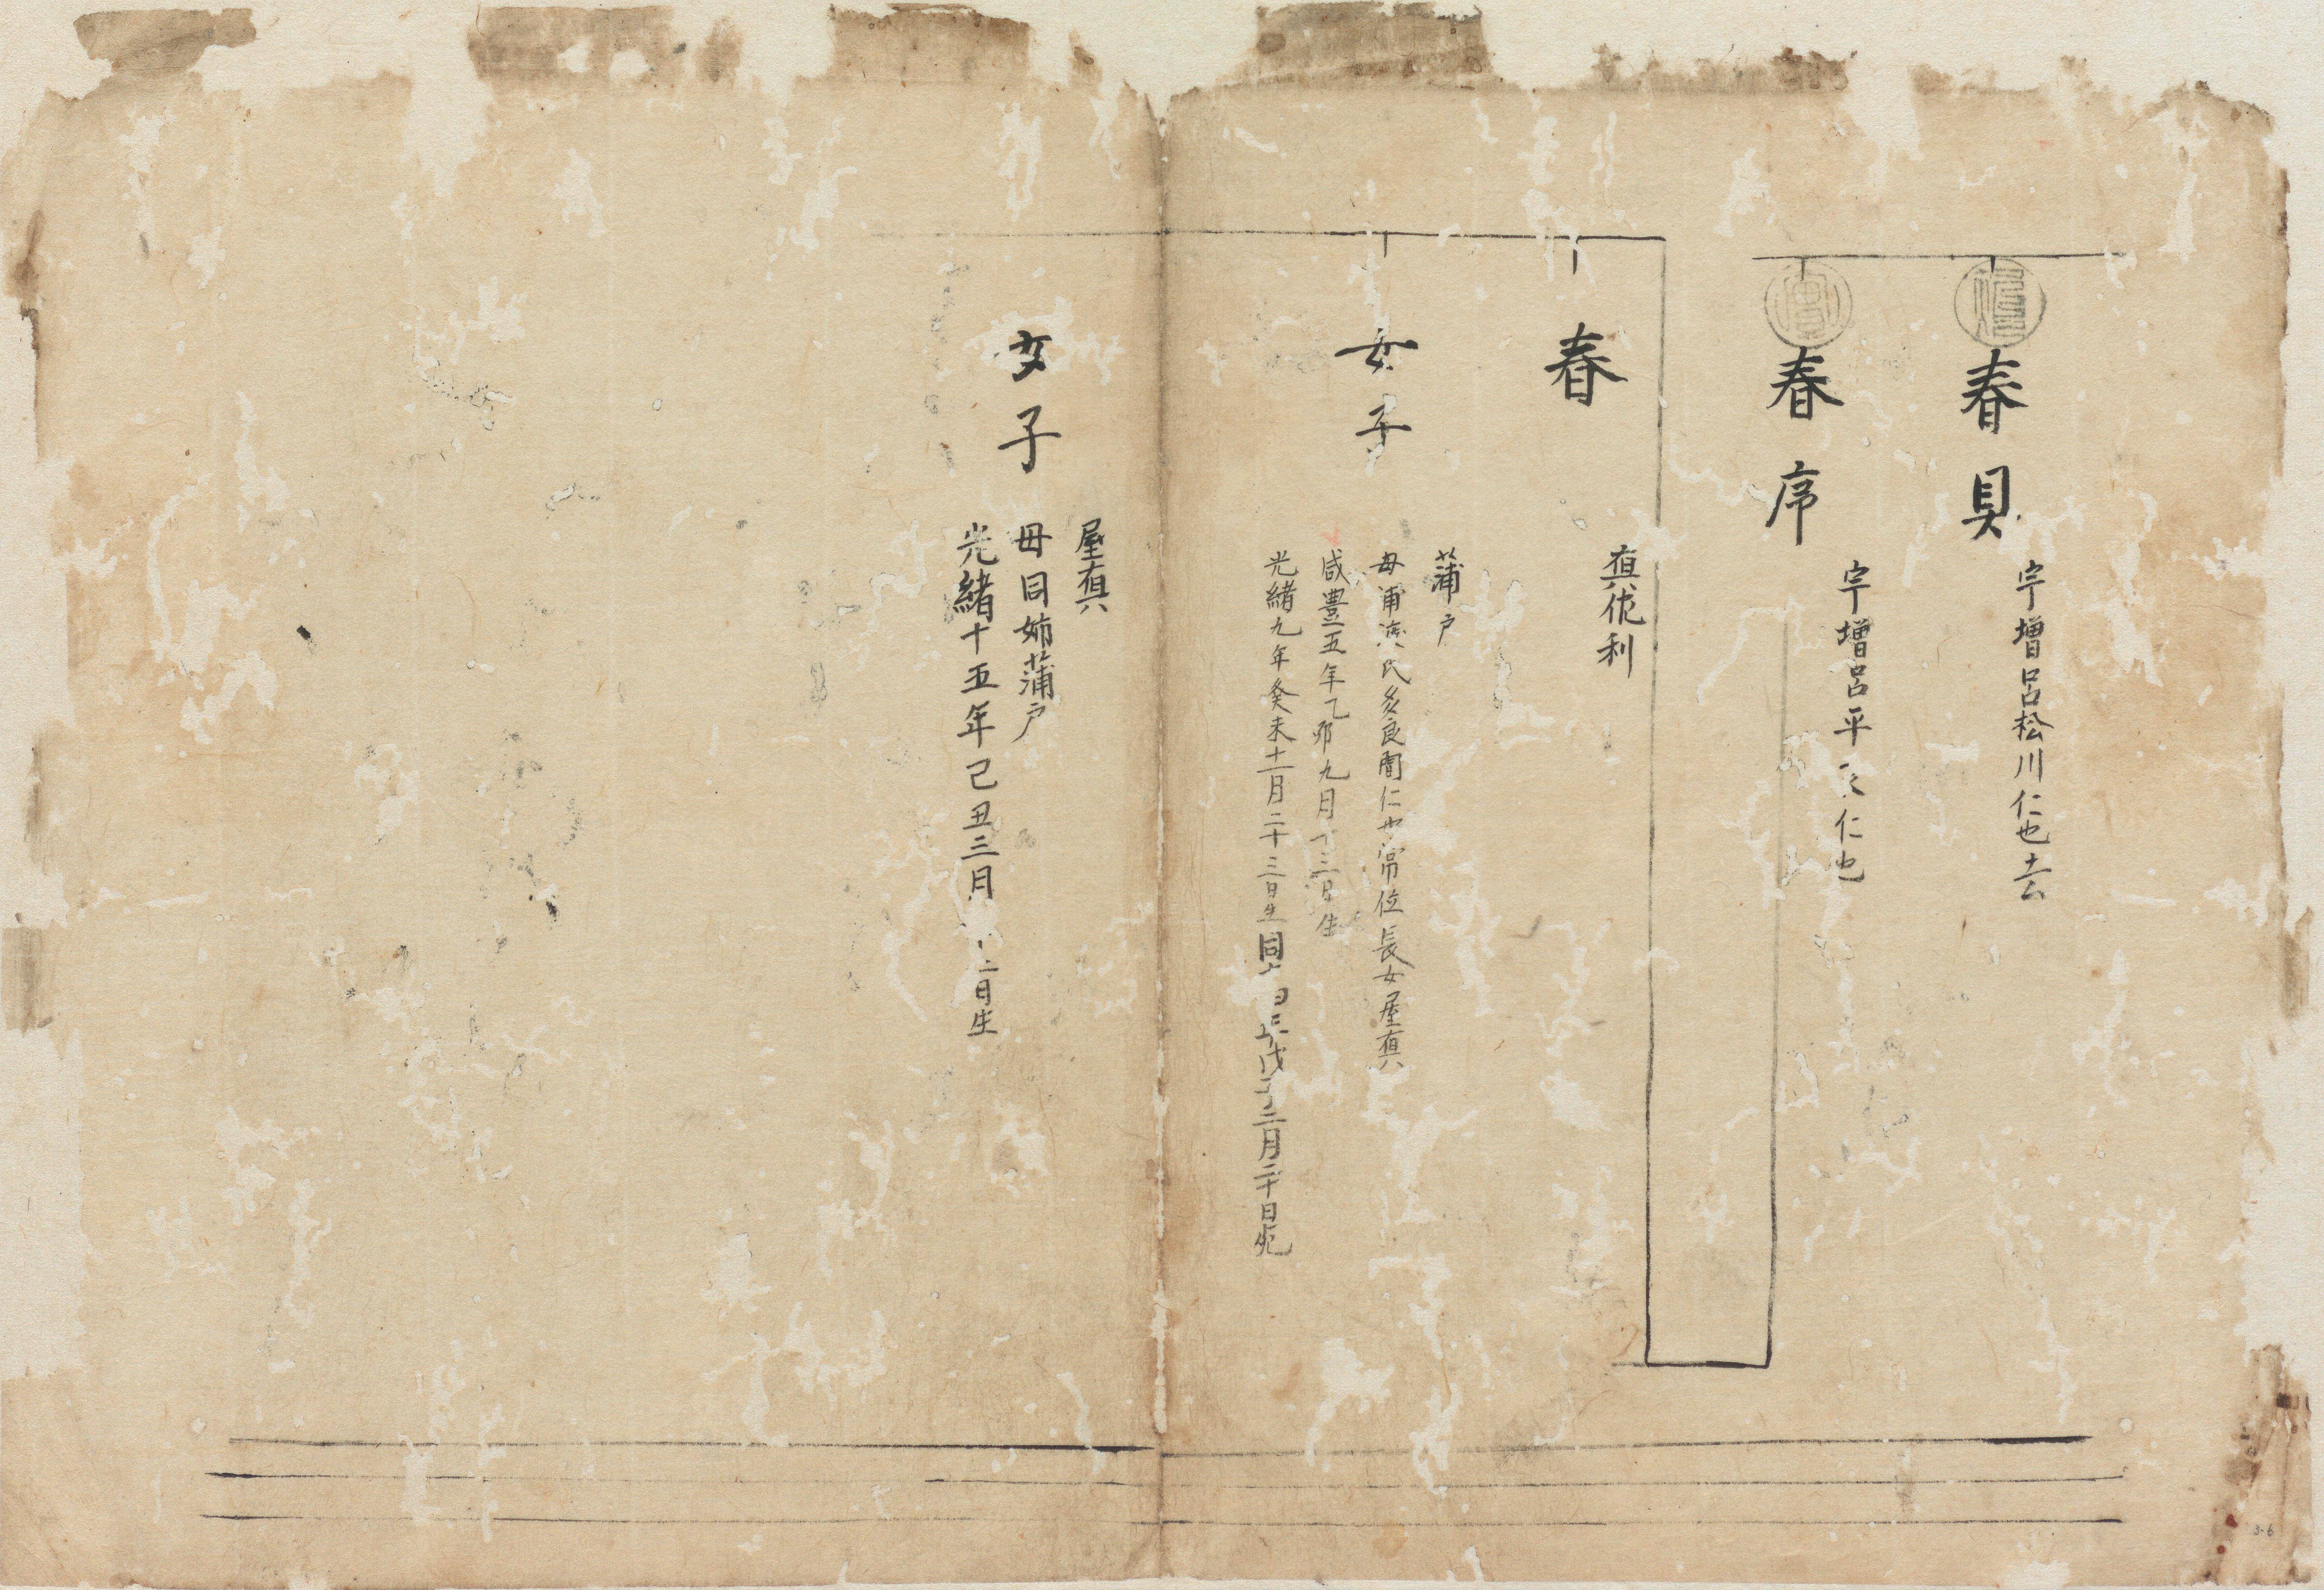 春貝
宇増呂松川仁也去
春序
宇増呂平 仁也
春
真佐利
女子
蒲戸
母浦濱氏多良間仁也常位長女屋真
咸豊五年乙卯九月十三日生
光緒九年癸未十一月二十三日生同 年戊子二月二十日死
女子
屋真
母同姉蒲戸
光緒十五年己丑三月 二日生
3-6